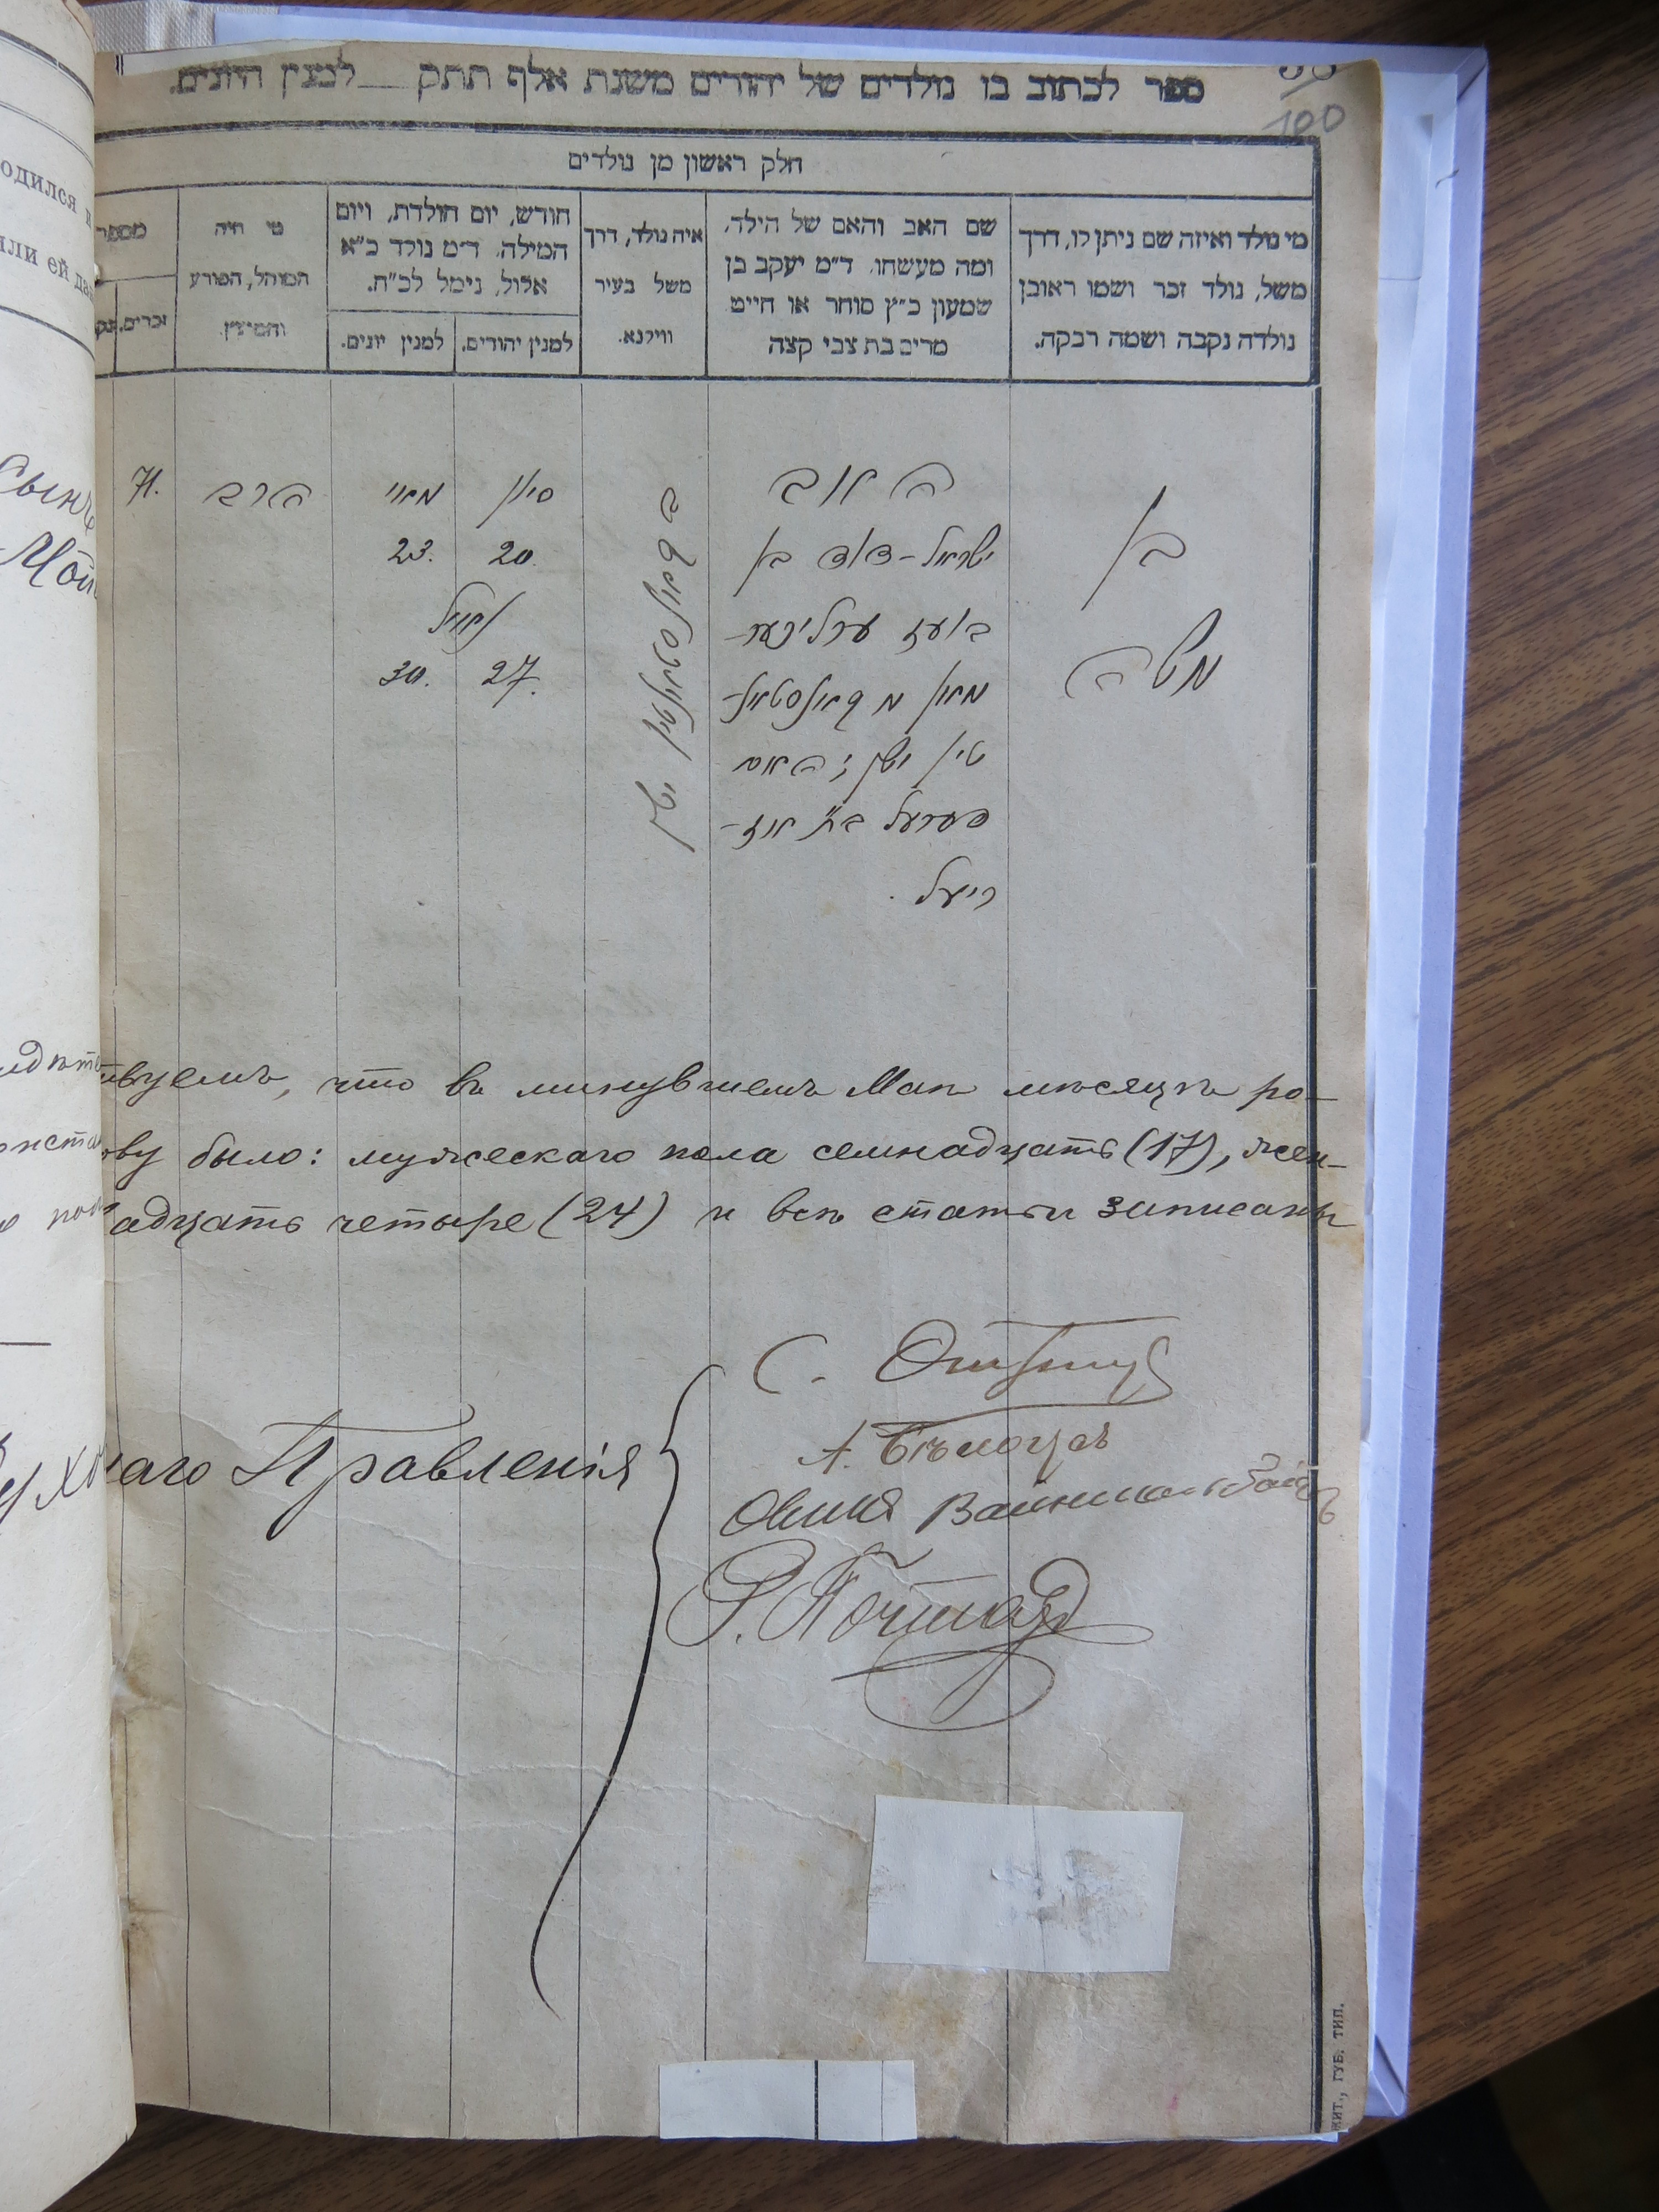 ספר לכתוב בו נולדים של יהודים משנת אלף תתק למנין היונים.
100
חלק ראשון מן נולדים
מי נולד ואיזה שם ניתן לו, דרך
משל, נולד זכר ושמו ראובן
נולדה נקבה ושמה רבקה.
שם האב והאם של הילד,
ומה מעשהו. ד״מ יעקב בן
שמעון כ״ץ סוחר או חייט
מרים בת צבי קצה
איה נולד, דרך
משל בעיר
ווילנא.
חודש, יום הולדת, ויום
המילה. ד״מ נולד כ״א
אלול, נימל לכ״ח.
למנין יהודים.
למנין יונים.
מי היה
המוהל, הפורע
והמוצץ.
מספר
זכרים.
נק
בן
משה
האב
ישראל-דוד בן
בועז ערלינער-
מאן מ קאנסטאנ-
טין ישן; האם
פערל בת עז-
ריאל.
ב קאנסטאנטין ישן
סיון
20.
27.
נימול
מאיי
23.
30.
הרב
71.
одился
или ей да
Сынъ
Мой
твуемъ, что въ минувшемъ Маѣ мѣсяцѣ ро-
ву было: мужескаго пола семнадцать (17), жен-
адцать четыре (24) и всѣ статьи записаны
наго Правленія
С.
А.
Вайнш
НИТ., ГУБ. ТИП.